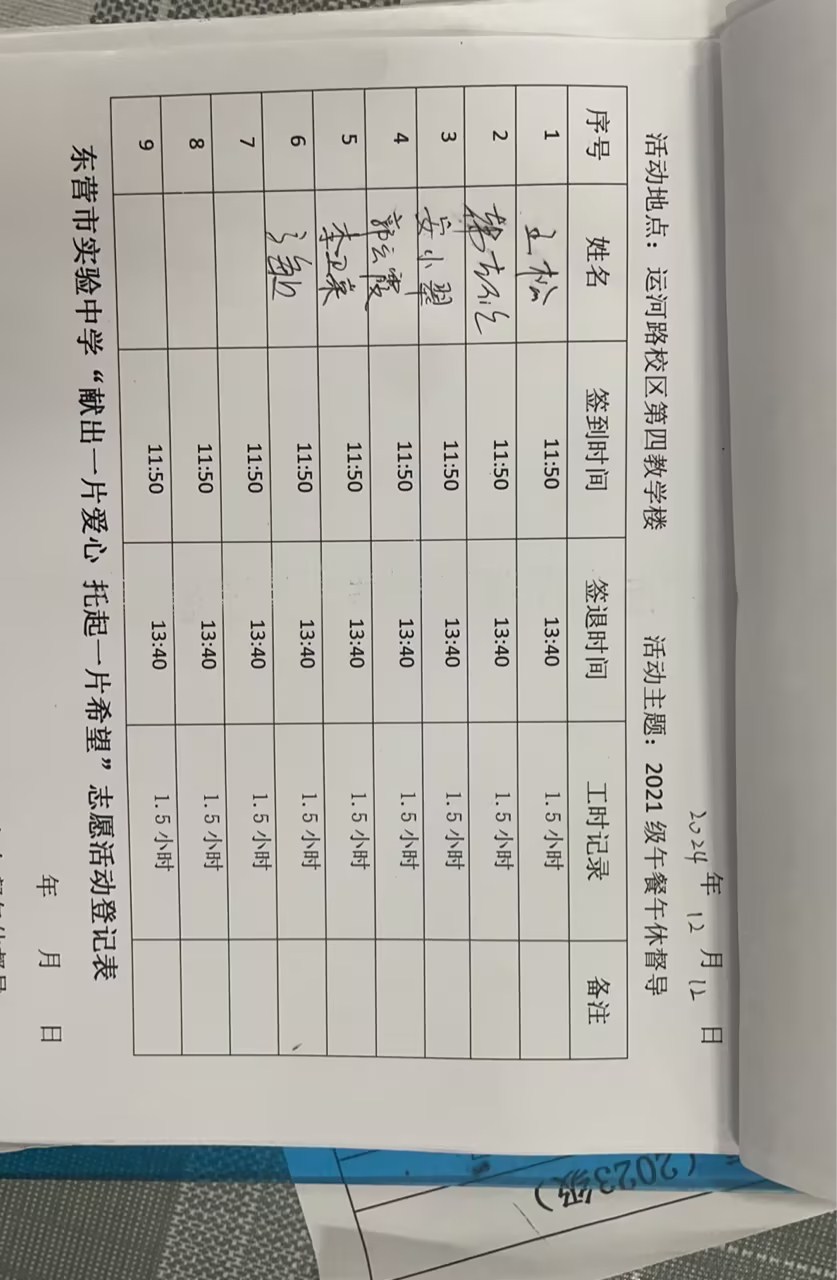 2024年 12月 12日
活动地点：运河路校区第四教学楼 活动主题：2021 级午餐午休督导
序号 姓名 签到时间 签退时间 工时记录 备注
1 王松 11:50 13:40 1.5 小时
2 11:50 13:40 1.5 小时
3 安小翠 11:50 13:40 1.5 小时
4 郭云霞 11:50 13:40 1.5 小时
5 李卫荣 11:50 13:40 1.5 小时
6 11:50 13:40 1.5 小时
7 11:50 13:40 1.5 小时
8 11:50 13:40 1.5 小时
9 11:50 13:40 1.5 小时
东营市实验中学“献出一片爱心 托起一片希望”志愿活动登记表
年 月 日
（2023级）